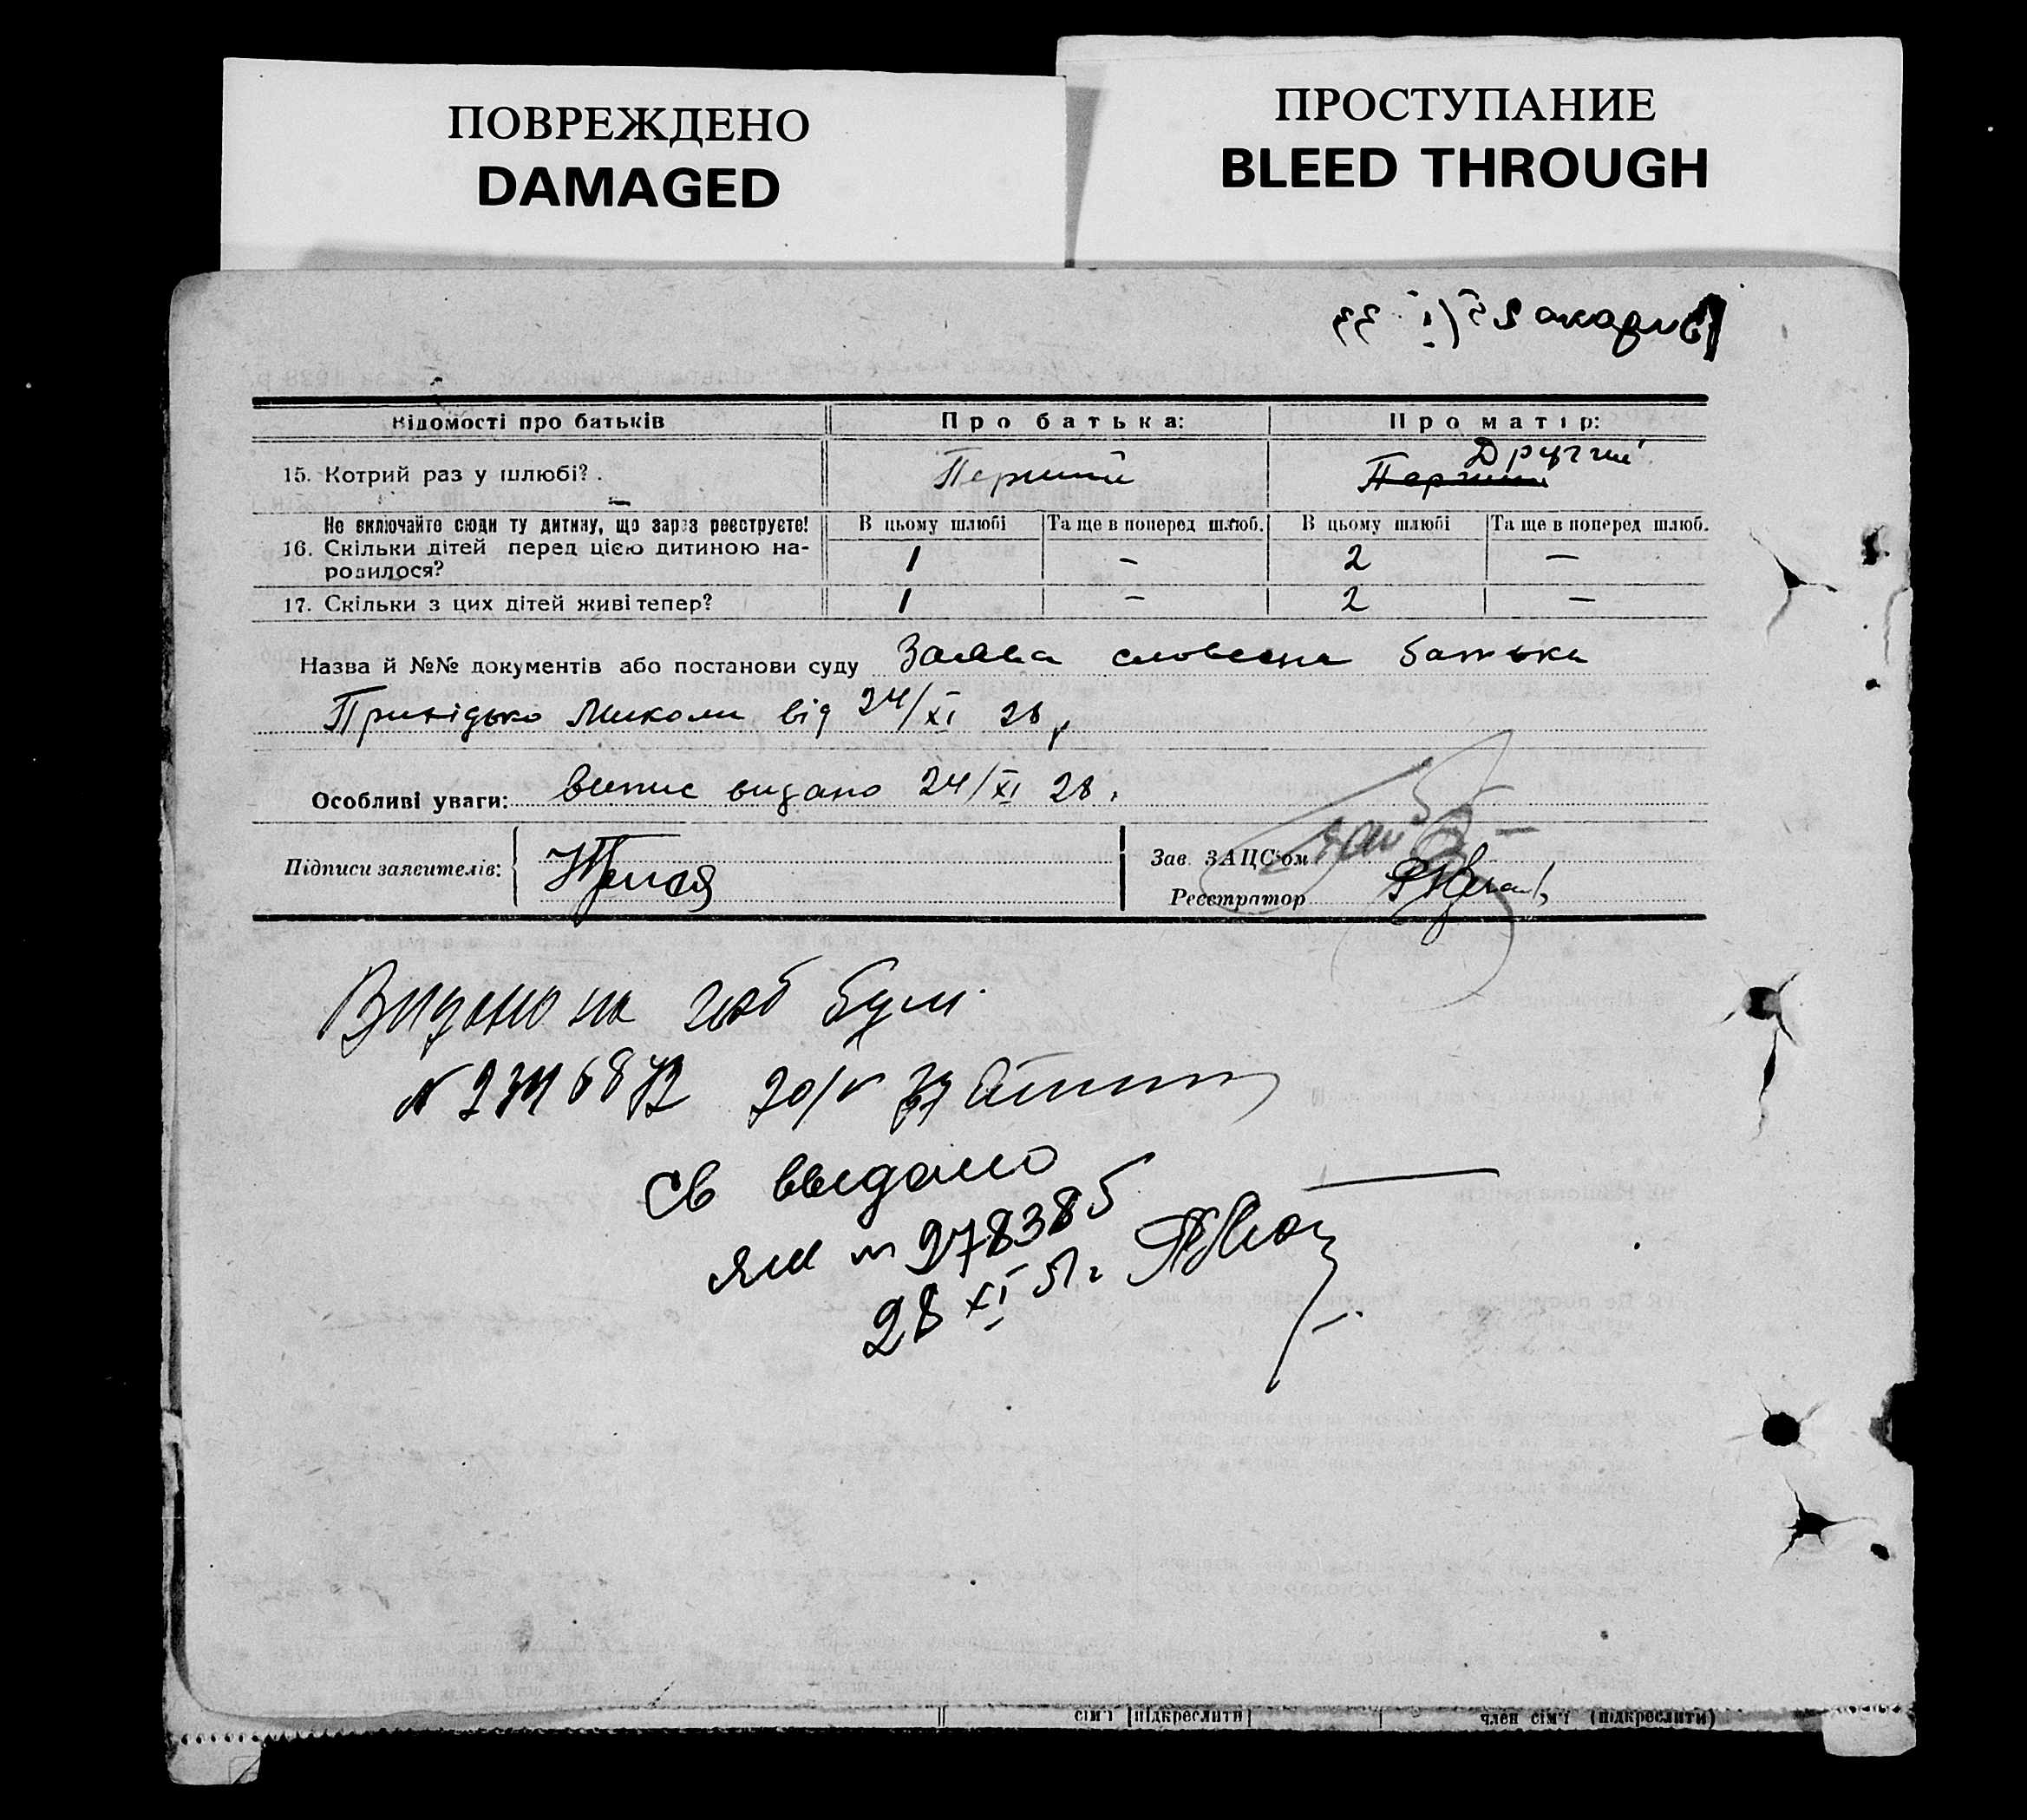 ПОВРЕЖДЕНО
DAMAGED
ПРОСТУПАНИЕ
BLEED THROUGH
Відомості про батьків
Про батька:
Про матір:
15. Котрий раз у шлюбі?
Перший
Другий
Перший
Не включайте сюди ту дитину, що зараз реєструєте!
В цьому шлюбі
Та ще в поперед шлюб.
В цьому шлюбі
Та ще в поперед шлюб.
16. Скільки дітей перед цією дитиною на-
родилося?
1
–
2
–
17. Скільки з цих дітей живі тепер?
1
–
2
–
Назва й №№ документів або постанови суду Заява словесна батька
Миколи від 24/XI 28
Особливі уваги: випис видано 24/XI 28.
Підписи заявителів:
Зав. ЗАЦС'ом
Реєстратор
Видано
20/V
Св выдано
ЯМ № 278385
28 XI 51 г
сім'ї [підкреслити]
член сім'ї (підкреслити)